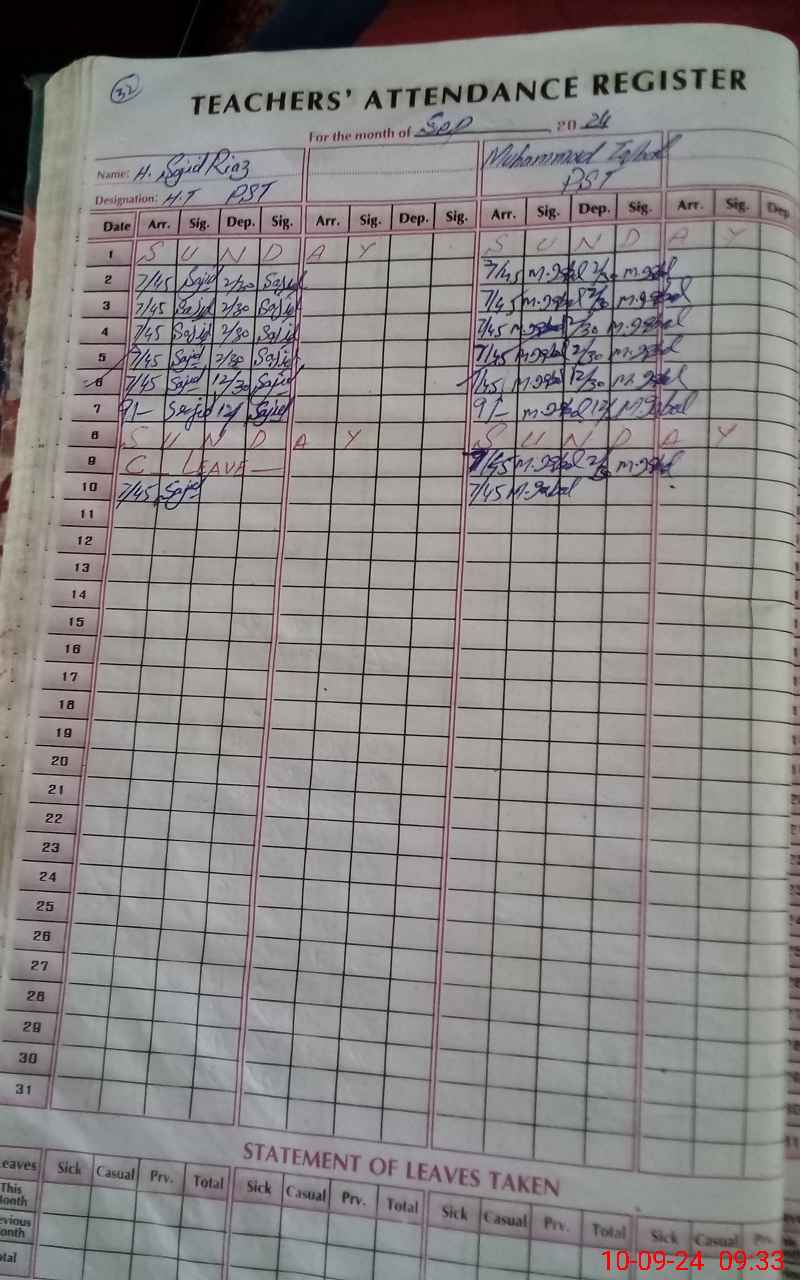 32
TEACHERS' ATTENDANCE REGISTER
For the month of Sep 2024
Name: H. Sajid Riaz Muhammad Iqbal
Designation: H.T PST PST
Date Arr. Sig. Dep. Sig. Arr. Sig. Dep. Sig. Arr. Sig. Dep. Sig. Arr. Sig. Dep
1 S U N D A Y S U N D A Y
2 7/45 Sajid 2/30 Sajid 7/45 M.Iqbal 2/30 M.Iqbal
3 7/45 Sajid 2/30 Sajid 7/45 M.Iqbal 2/30 M.Iqbal
4 7/45 Sajid 2/30 Sajid 7/45 M.Iqbal 2/30 M.Iqbal
5 7/45 Sajid 2/30 Sajid 7/45 M.Iqbal 2/30 M.Iqbal
6 7/45 Sajid 12/30 Sajid 7/45 M.Iqbal 12/30 M.Iqbal
7 9/- Sajid 12/ Sajid 9/- M.Iqbal 12/ M.Iqbal
8 S U N D A Y S U N D A Y
9 C - LEAVE - 7/45 M.Iqbal 2/30 M.Iqbal
10 7/45 Sajid 7/45 M.Iqbal
11
12
13
14
15
16
17
18
19
20
21
22
23
24
25
26
27
28
29
30
31
STATEMENT OF LEAVES TAKEN
eaves Sick Casual Prv. Total Sick Casual Prv. Total Sick Casual Prv. Total Sick Casual
This
onth
evious
onth
tal
10-09-24 09:33